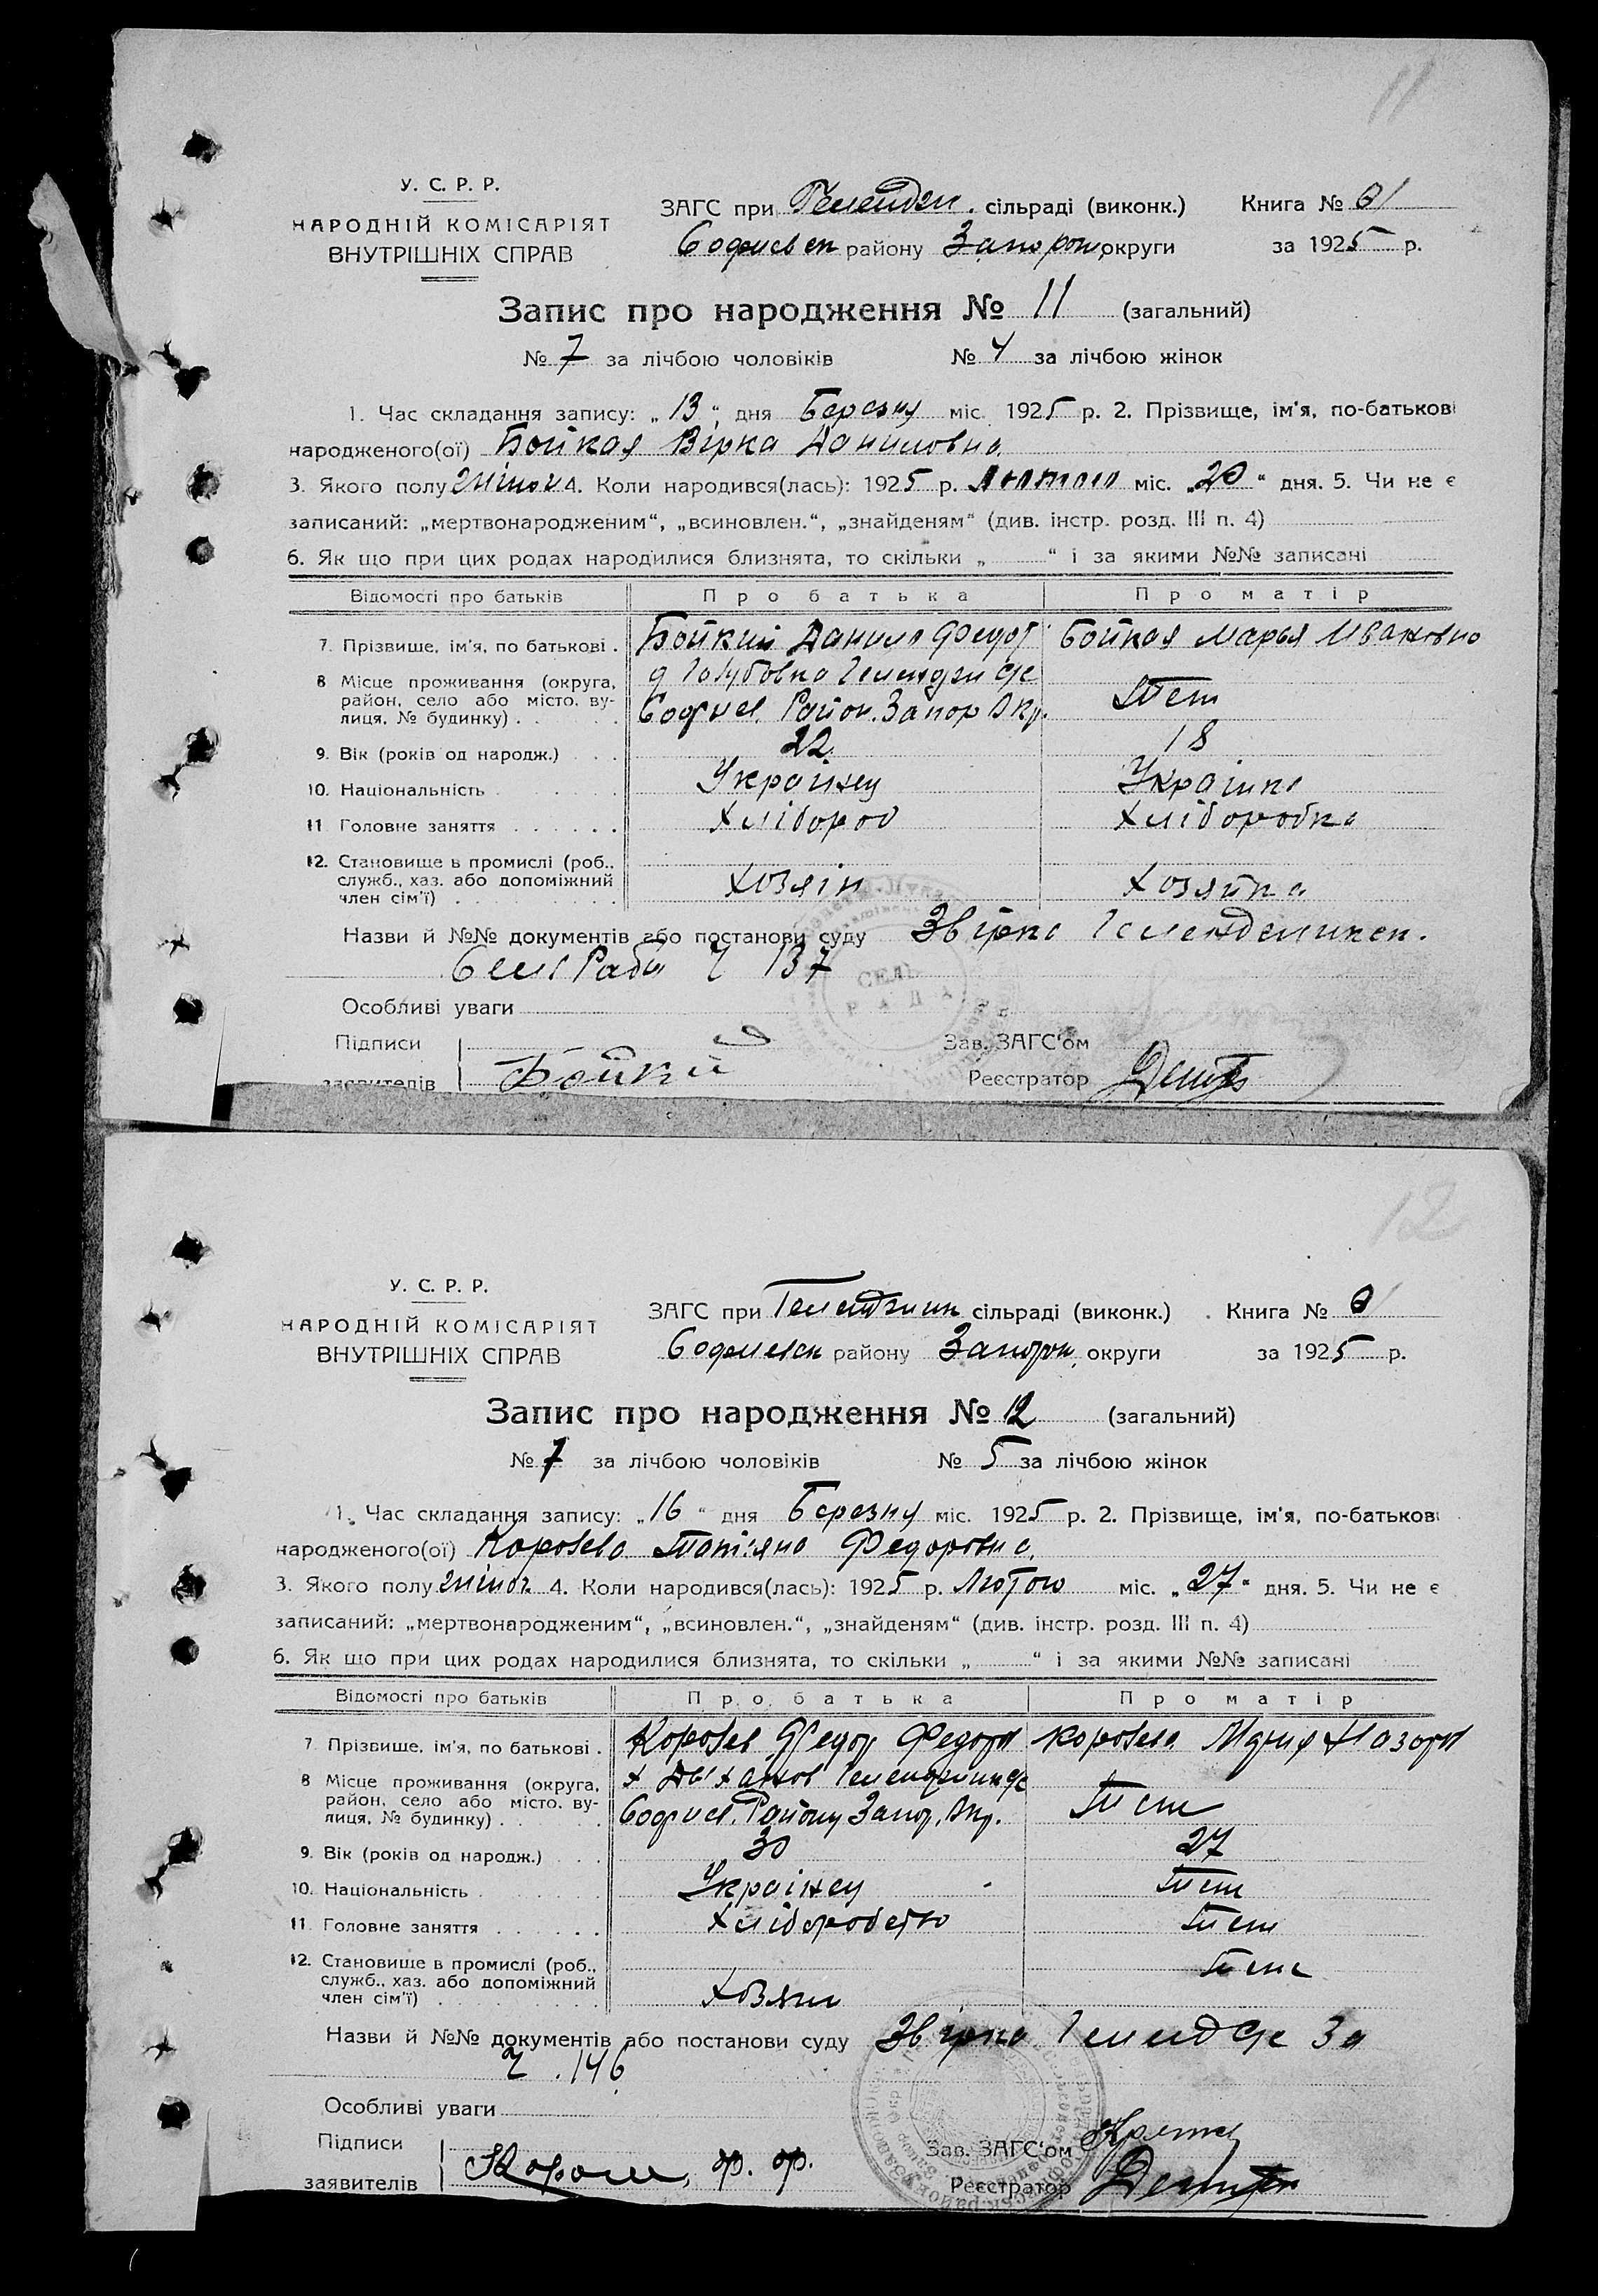 11
У. С. Р. Р.
НАРОДНІЙ КОМІСАРІЯТ
ВНУТРІШНІХ СПРАВ
ЗАГС при сільраді (виконк.) Книга № 01
Софиевск району Запорож округи за 1925 р.
Запис про народження № 11 (загальний)
№ 7 за лічбою чоловіків № 4 за лічбою жінок
1. Час складання запису: „13“ дня Березня міс. 1925 р. 2. Прізвище, ім'я, по-батькові
народженого(ої) Бойкая Вірка Даниловна
3. Якого полу жіноч 4. Коли народився(лась): 1925 р. Лютого міс. „20“ дня. 5. Чи не є
записаний: „мертвонародженим“, „всиновлен.“, „знайденям“ (див. інстр. розд. III п. 4)
6. Як що при цих родах народилися близнята, то скільки „ “ і за якими №№ записані
Відомості про батьків Про батька Про матір
7. Прізвище, ім'я, по батькові . Бойкий Данило Федот Бойкая Марья Ивановна
8 Місце проживання (округа,
район, село або місто, ву-
лиця, № будинку) . . . Софиев. Район. Запор Окр. Теж
9. Вік (років од народж.) . . . 22 18
10. Національність . . . . . Українец Українка
11 Головне заняття . . . . . . Хлібороб Хлібаробка
12. Становище в промислі (роб.,
служб., хаз. або допоміжний
член сім'ї) . . . . . . . . . Хозяін Хозяйка
Назви й №№ документів або постанови суду Звірка
Сельради Ч 137
СЕЛЬ
РАДА
Особливі уваги
Підписи Зав. ЗАГС'ом
заявителів Бойкий Реєстратор
12
У. С. Р. Р.
НАРОДНІЙ КОМІСАРІЯТ
ВНУТРІШНІХ СПРАВ
ЗАГС при сільраді (виконк.) Книга № 01
Софиевск району Запорож. округи за 1925 р.
Запис про народження № 12 (загальний)
№ 7 за лічбою чоловіків № 5 за лічбою жінок
1. Час складання запису: „16“ дня Березня міс. 1925 р. 2. Прізвище, ім'я, по-батькові
народженого(ої) Татіяна Федоровна
3. Якого полу жіноч 4. Коли народився(лась): 1925 р. Лютого міс. „27“ дня. 5. Чи не є
записаний: „мертвонародженим“, „всиновлен.“, „знайденям“ (див. інстр. розд. III п. 4)
6. Як що при цих родах народилися близнята, то скільки „ “ і за якими №№ записані
Відомості про батьків Про батька Про матір
7 Прізвище, ім'я, по батькові . Федор Федоров
8 Місце проживання (округа,
район, село або місто, ву-
лиця, № будинку) . . . Софиев. Району Запор. Окр. Теж
9. Вік (років од народж.) . . . 30 27
10. Національність . . . . . Українец Теж
11. Головне заняття . . . . . . Хліборобство Теж
12. Становище в промислі (роб., Теж
служб., хаз. або допоміжний
член сім'ї) . . . . . . . . . Хозяин
Назви й №№ документів або постанови суду Звірка За
Ч. 146
Особливі уваги
Підписи Зав. ЗАГС'ом
заявителів Реєстратор